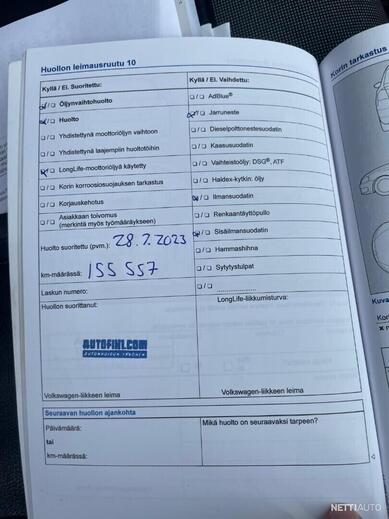 Huollon leimausruutu 10
Kyllä / Ei. Suoritettu:
Öljynvaihtohuolto
Huolto
Yhdistettynä moottoriöljyn vaihtoon
Yhdistettynä laajempiin huoltotöihin
LongLife-moottoriöljyä käytetty
Korin korroosiosuojauksen tarkastus
Korjauskehotus
Asiakkaan toivomus
(merkintä myös työmääräykseen)
Huolto suoritettu (pvm.): 28.7.2023
km-määrässä: 155 557
Laskun numero:
Huollon suorittanut:
AUTOFIX1.COM
Volkswagen-liikkeen leima
Kyllä / Ei. Vaihdettu:
AdBlue®
Jarruneste
Dieselpolttonestesuodatin
Kaasusuodatin
Vaihteistoöljy: DSG®, ATF
Haldex-kytkin: öljy
Ilmansuodatin
Renkaantäyttöpullo
Sisäilmansuodatin
Hammashihna
Sytytystulpat
LongLife-liikkumisturva:
Volkswagen-liikkeen leima
Seuraavan huollon ajankohta
Päivämäärä:
tai
km-määrässä:
Mikä huolto on seuraavaksi tarpeen?
Korin tarkastus
NETTIAUTO